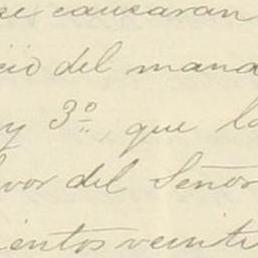 se causaran
cio del mana
y 3º, que la
vor del Señor
ientos veinti